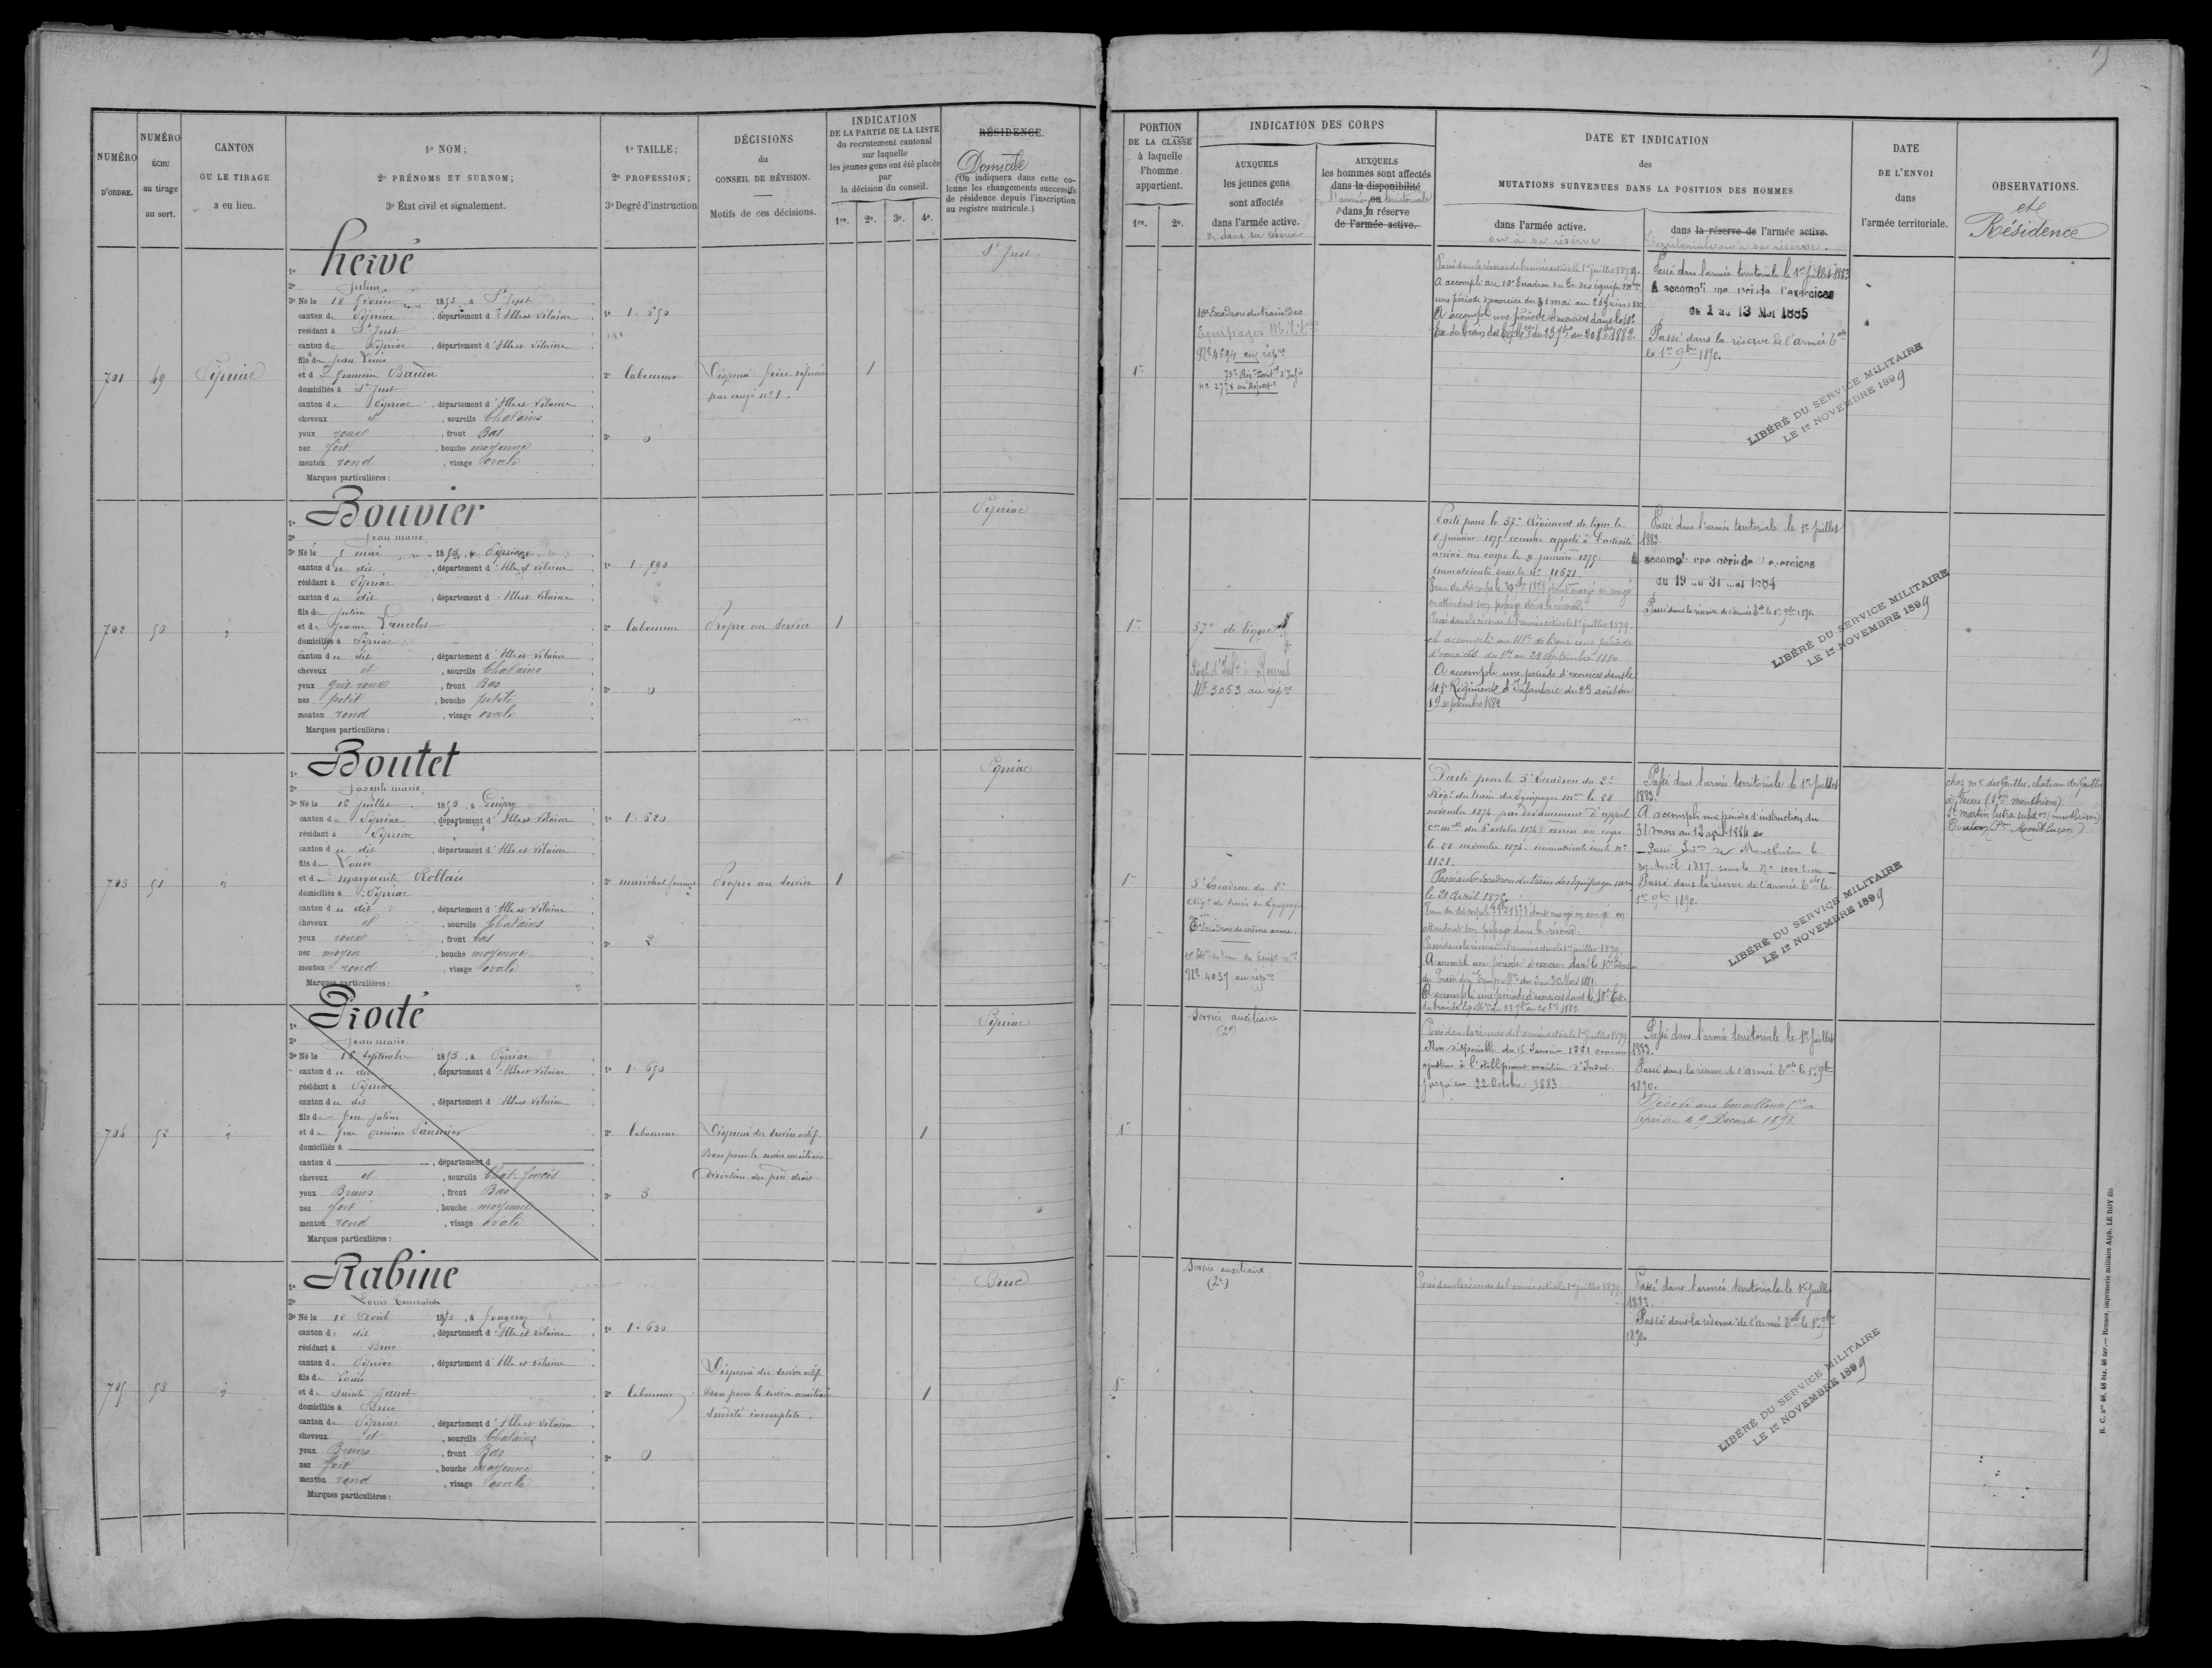 NUMÉRO D'ORDRE.
NUMÉRO ÉCHU au tirage au sort.
CANTON OU LE TIRAGE a eu lieu.
1º NOM;
2º PRÉNOMS ET SURNOM;
3º État civil et signalement.
1º TAILLE;
2º PROFESSION;
3º Degré d'instruction
DÉCISIONS du CONSEIL DE RÉVISION.
Motifs de ces décisions.
INDICATION DE LA PARTIE DE LA LISTE
du recrutement cantonal
sur laquelle
les jeunes gens ont été placés
par
la décision du conseil.
1re. 2e. 3e. 4e.
RÉSIDENCE.
Domicile
(On indiquera dans cette colonne les changements successifs de résidence depuis l'inscription au registre matricule.)
PORTION DE LA CLASSE à laquelle l'homme appartient.
1re. 2e.
INDICATION DES CORPS
AUXQUELS les jeunes gens sont affectés dans l'armée active.
& dans sa réserve
AUXQUELS les hommes sont affectés dans la disponibilité ou dans la réserve de l'armée active.
l'armée territoriale
DATE ET INDICATION des MUTATIONS SURVENUES DANS LA POSITION DES HOMMES
dans l'armée active.
ou à sa réserve
dans la réserve de l'armée active.
territoriale ou à sa réserve.
DATE DE L'ENVOI dans l'armée territoriale.
OBSERVATIONS.
et Résidence
701
49
Pipriac
1º hervé
2º Julien
3º Né le 18 février 1853, à St Just
canton de Pipriac, département d'Ille et Vilaine
résidant à St Just
canton de Pipriac, département d'Ille et Vilaine
fils de Jean Louis
et de
domiciliés à St Just
canton de Pipriac, département d'Ille et Vilaine
cheveux et, sourcils Chatains
yeux roux, front Bas
nez fort, bouche moyenne
menton rond, visage ovale
Marques particulières :
1º 1.650
2º laboureur
3º 0
Dispensé frère
par congé nº 1.
1
St Just
1re
10e Escadron du train des
Equipages Milit
Nº 4694 au rép
nº 2778 au Répert
Passé dans la réserve de l'armée active le 1er juillet 1879.
A accompli au 10e Escadron du Tr. des équip. mres
une période d'exercice du 31 mai au 26 juin 1880
A accompli une période d'exercices dans le 10e
Passé dans l'armée territoriale le 1er Juillet 1883
A accompli une période d'exercices
du 1 au 13 Mai 1885
Passé dans la réserve de l'armée tale
le 1er 9bre 1890.
LIBÉRÉ DU SERVICE MILITAIRE
LE 1er NOVEMBRE 1899
702
50
1º Bouvier
2º Jean marie
3º Né le 5 mai 1853, à Pipriac
canton du dit, département d'Ille et Vilaine
résidant à Pipriac
canton du dit, département d'Ille et Vilaine
fils de Julien
et de Jeanne Lancelot
domiciliés à Pipriac
canton du dit, département d'Ille et Vilaine
cheveux et, sourcils Chatains
yeux gris roux, front Bas
nez petit, bouche petite
menton rond, visage ovale
Marques particulières :
1º 1.590
2º laboureur
3º 0
Propre au Service
1
Pipriac
1re
37e de ligne
Régt d'Infie à Rennes
Nº 3053 au répre
Parti pour le 37e Régiment de ligne le
8 janvier 1875 comme appelé à l'activité
arrivé au corps le 9 janvier 1875.
Immatriculé sous le nº 11671
en attendant son passage dans la réserve.
Passé dans la réserve de l'armée active le 1er juillet 1879.
A accompli au 41e de ligne une période
d'exercices du 1er au 28 septembre 1880
A accompli une période d'exercices dans le
41e Régiment d'Infanterie du 23 août au
19 septembre 1882
Passé dans l'armée territoriale le 1er Juillet
1883.
A accompli une période d'exercices
du 19 au 31 mai 1884
Passé dans la réserve de l'armée tale le 1er 9bre 1890.
LIBÉRÉ DU SERVICE MILITAIRE
LE 1er NOVEMBRE 1899
703
51
1º Boutet
2º Joseph marie,
3º Né le 16 juillet 1853, à Guipry
canton de Pipriac, département d'Ille et Vilaine
résidant à Pipriac
canton du dit, département d'Ille et Vilaine
fils de Louis
et de marguerite Rollais
domiciliés à Pipriac
canton du dit, département d'Ille et Vilaine
cheveux et, sourcils Chatains
yeux roux, front bas
nez moyen, bouche moyenne
menton rond, visage ovale
Marques particulières :
1º 1.680
2º maréchal ferrant
3º 2
Propre au Service
1
Pipriac
1re
5e Escadron du 2e
Régt du train des Equipages
Escadron de même arme.
Nº 4037 au répre
Parti pour le 5e Escadron du 2e
Régt du train des Equipages mres le 28
novembre 1874 par devancement d'appel
arrivé au corps
le 28 novembre 1874. immatriculé sous le nº
1121.
le 21 Avril 1875.
attendant son passage dans la réserve.
Passé dans la réserve de l'armée active le 1er juillet 1879.
A accompli une période d'exercices dans le 10e Escadron
A accompli une période d'exercices dans le 10e Esc
Passé dans l'armée territoriale le 1er Juillet
1883.
A accompli une période d'instruction du
31 mars au 12 avril 1884
Passé Subon de Montbrison le
30 Avril 1887 sous le Nº 1000
Passé dans la réserve de l'armée tale le
1er 9bre 1890.
LIBÉRÉ DU SERVICE MILITAIRE
LE 1er NOVEMBRE 1899
chez mr des Gouttes, chateau des Gouttes
St martin lestra subdon (montbrison)
704
52
1º Piodé
2º Jean marie
3º Né le 16 septembre 1853, à Pipriac
canton du dit, département d'Ille et Vilaine
résidant à Pipriac
canton du dit, département d'Ille et Vilaine
fils de feu julien
et de feue
domiciliés à
canton d, département d
cheveux et, sourcils Chat. foncés
yeux Bruns, front Bas
nez fort, bouche moyenne
menton rond, visage ovale
Marques particulières :
1º 1.650
2º laboureur
3º 3
Dispensé du service actif.
Bon pour le service auxiliaire
déviation du pied droit
1
Pipriac
1re
Service auxiliaire
(2e)
Passé dans la réserve de l'armée active le 1er juillet 1879.
Non disponible du 15 Janvier 1881 comme
ajusteur à l'établissement maritime d'Indret
jusqu'au 22 Octobre 1883
Passé dans l'armée territoriale le 1er Juillet
1883.
Passé dans la réserve de l'Armée tale le 1er 9bre
1890.
Pipriac le 9 Décembre 1893.
705
53
1º Rabine
2º Louis Toussaint
3º Né le 18 Avril 1853, à Fougeray
canton du dit, département d'Ille et Vilaine
résidant à Bruc
canton de Pipriac, département d'Ille et Vilaine
fils de Louis
et de Sainte Janot
domiciliés à Bruc
canton de Pipriac, département d'Ille et Vilaine
cheveux et, sourcils Chatains
yeux Bruns, front Bas
nez fort, bouche moyenne
menton rond, visage ovale
Marques particulières :
1º 1.630
2º laboureur
3º 0
Dispensé du service actif.
Bon pour le service auxiliaire
Surdité incomplète.
1
Bruc
1re
Service auxiliaire
(2e)
Passé dans la réserve de l'armée active le 1er juillet 1879.
Passé dans l'armée territoriale le 1er Juillet
1883.
Passé dans la réserve de l'armée tale le 1er 9bre
1890.
LIBÉRÉ DU SERVICE MILITAIRE
LE 1er NOVEMBRE 1899
R. C. nos 48, 48 bis, 48 ter. — Rennes, imprimerie militaire Alph. LE ROY fils